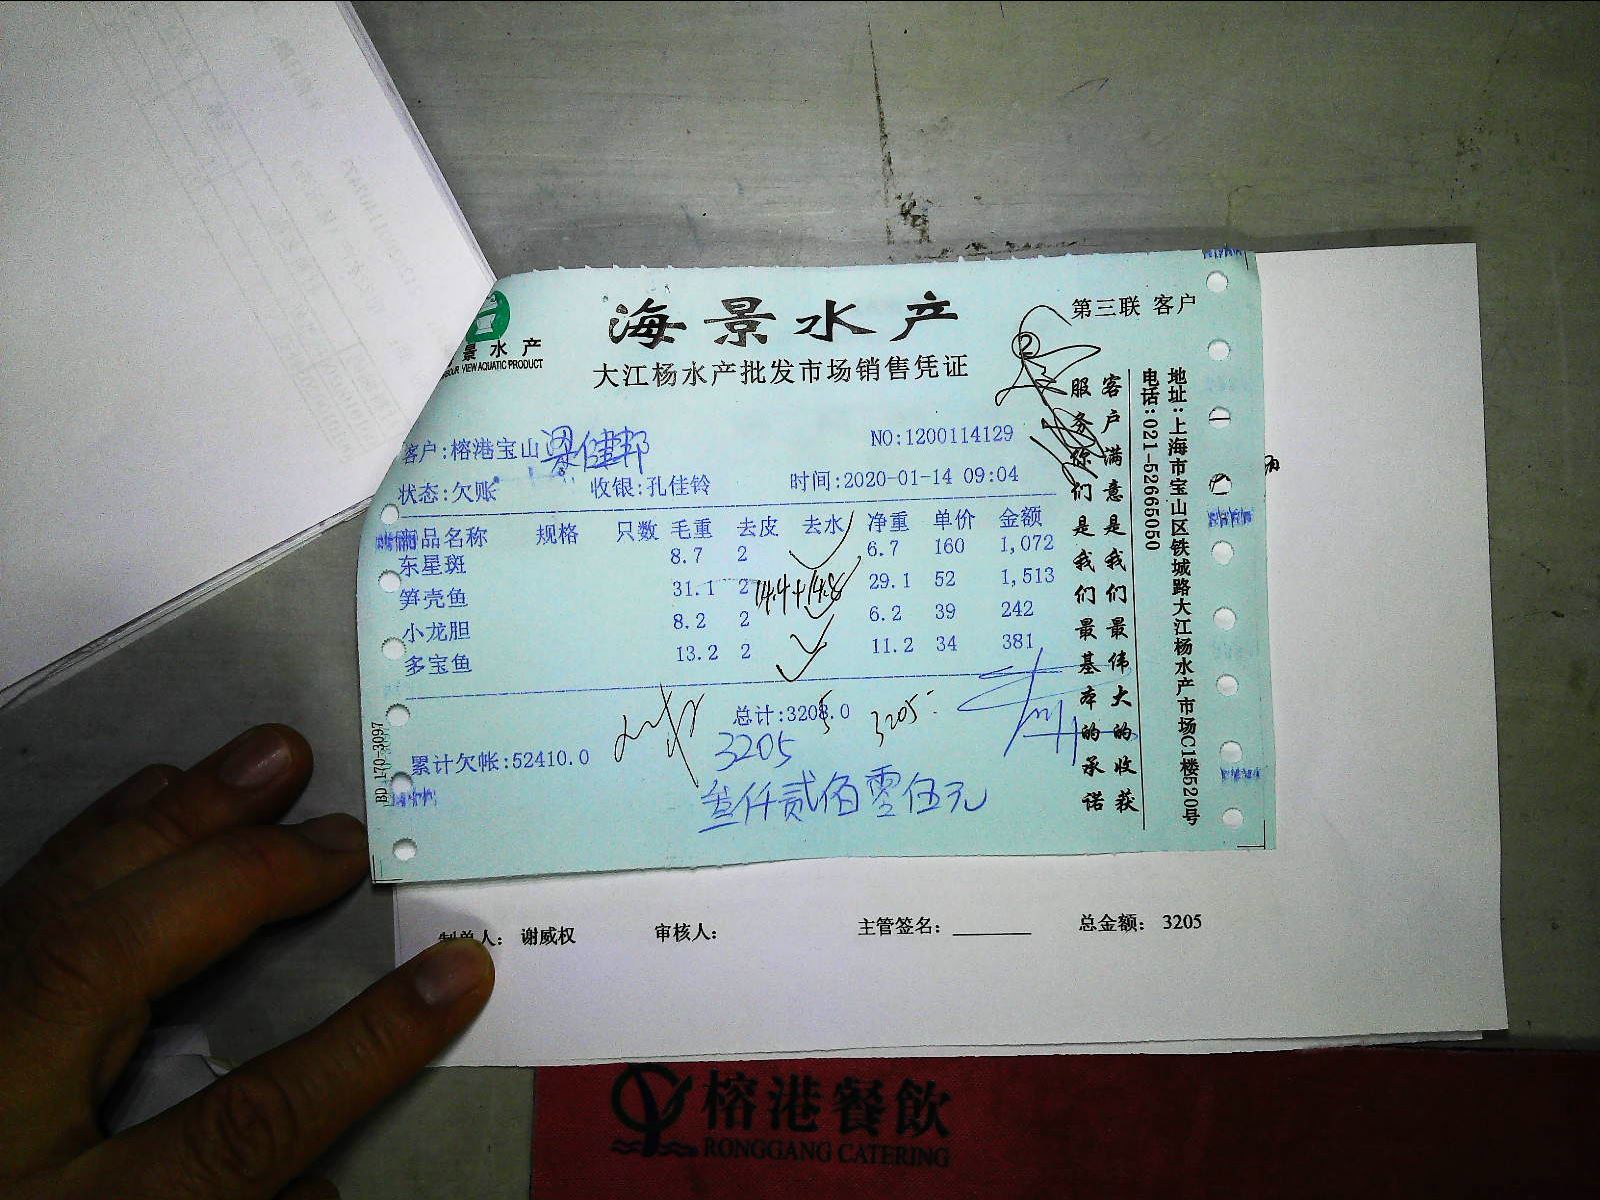 海景水产
第三联 客户
景水产
OUR VIEW AQUATIC PRODUCT
大江杨水产批发市场销售凭证
客户:榕港宝山 梁健邦
NO:1200114129
状态:欠账
收银:孔佳铃
时间:2020-01-14 09:04
商品名称 规格 只数 毛重 去皮 去水 净重 单价 金额
东星斑 8.7 2 6.7 160 1,072
笋壳鱼 31.1 2 14.4+14.8 29.1 52 1,513
小龙胆 8.2 2 6.2 39 242
多宝鱼 13.2 2 11.2 34 381
总计:3208.0
3205
累计欠帐:52410.0
3205
叁仟贰佰零伍元
客户满意是我们最伟大的收获
服务你们是我们最基本的承诺
地址:上海市宝山区铁城路大江杨水产市场C1楼520号
电话:021-52665050
BD 170-3097
制单人: 谢威权
审核人:
主管签名:
总金额: 3205
榕港餐飲
RONGGANG CATERING